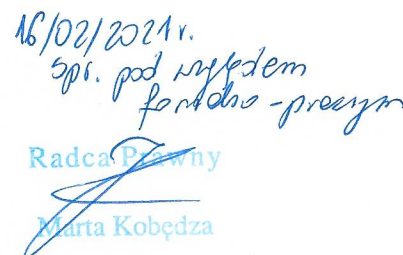 16/02/2021r.
Spr. pod względem
formalno-prawnym
Radca Prawny
Marta Kobędza